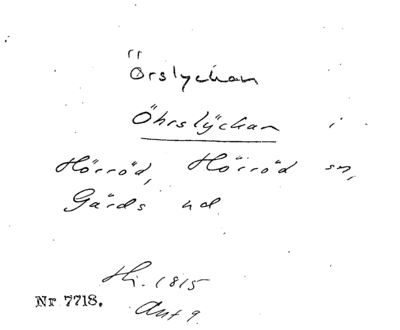 Örslyckan
Öhrslÿckan i
Hörröd, Hörröd sn,
Gärds hd
Hi. 1815
Nr 7718.
Akt 9.